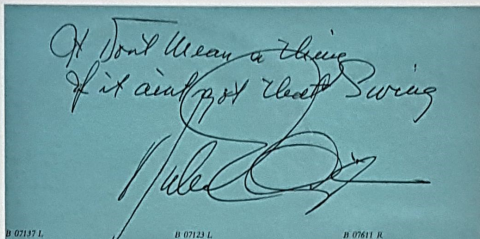 It Don't Mean a thing
If it aint got that Swing
B 07137 L
B 07123 L
B 07611 R